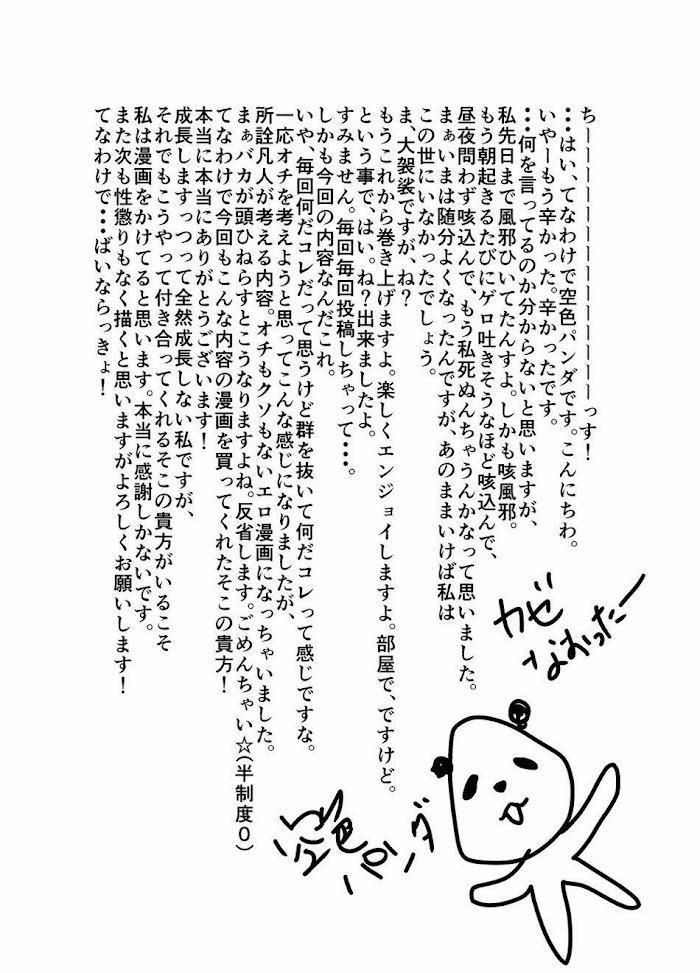 ちーーーーーーーーーーっす！
・・はい、てなわけで空色パンダです。こんにちわ。
いやーもう辛かった。辛かったです。
・・何を言ってるのか分からないと思いますが、
私先日まで風邪ひいてたんすよ。しかも咳風邪。
もう朝起きるたびにゲロ吐きそうなほど咳込んで、
昼夜問わず咳込んで、もう私死ぬんちゃうんかなって思いました。
まぁいまは随分よくなったんですが、あのままいけば私は
この世にいなかったでしょう。
ま、大袈裟ですが、ね？
もうこれから巻き上げますよ。楽しくエンジョイしますよ。部屋で、ですけど。
という事で、はい。ね？出来ましたよ。
すみません。毎回毎回投稿しちゃって・・・。
しかも今回の内容なんだこれ。
いや、毎回何だコレだって思うけど群を抜いて何だコレって感じですな。
一応オチを考えようと思ってこんな感じになりましたが、
所詮凡人が考える内容。オチもクソもないエロ漫画になっちゃいました。
まぁバカが頭ひねらすとこうなりますよね。反省します。ごめんちゃい☆(半制度０)
てなわけで今回もこんな内容の漫画を買ってくれたそこの貴方！
本当に本当にありがとうございます！
成長しますっつって全然成長しない私ですが、
それでもこうやって付き合ってくれるそこの貴方がいるこそ
私は漫画をかけてると思います。本当に感謝しかないです。
また次も性懲りもなく描くと思いますがよろしくお願いします！
てなわけで・・ばいならっきょ！
カゼ
なおったー
空色パンダ